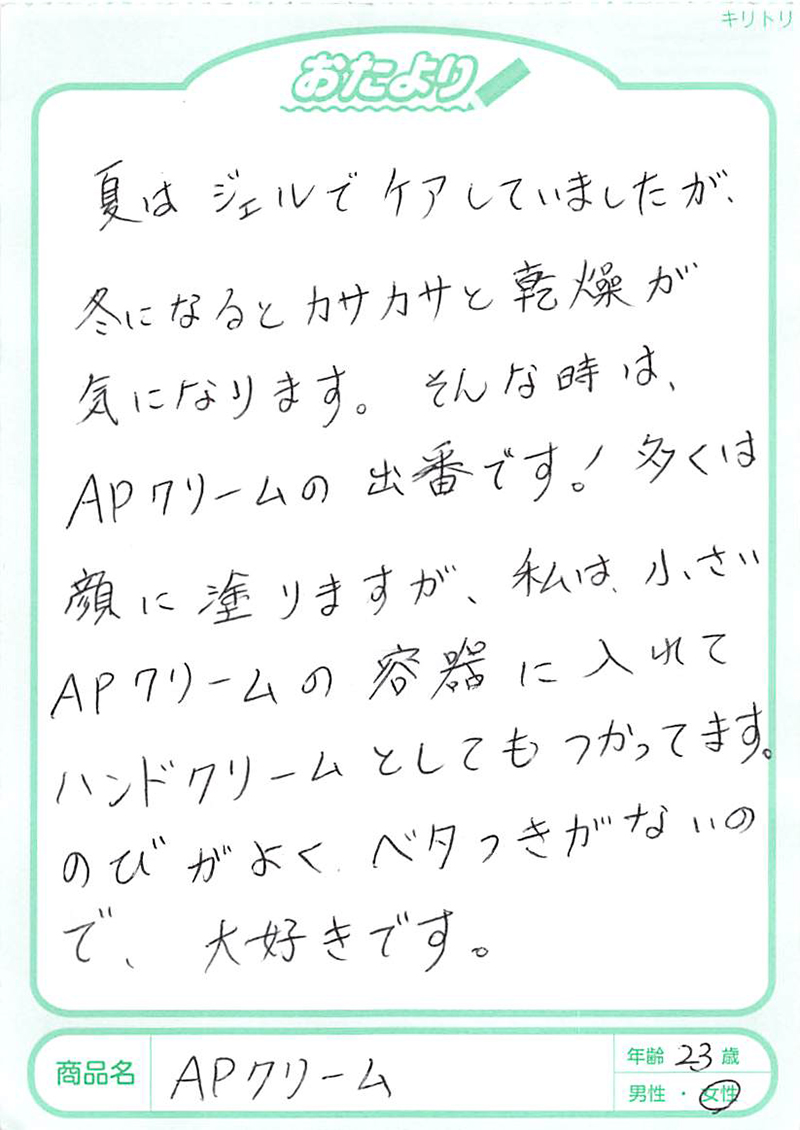 キリトリ
おたより
夏は ジェルで ケアしていましたが、
冬になるとカサカサと乾燥が
気になります。そんな時は、
APクリームの出番です！多くは
顔に塗りますが、私は、小さい
APクリームの容器に入れて
ハンドクリームとしてもつかってます。
のびがよく、ベタつきがないの
で、大好きです。
商品名 APクリーム
年齢 23 歳
男性・女性